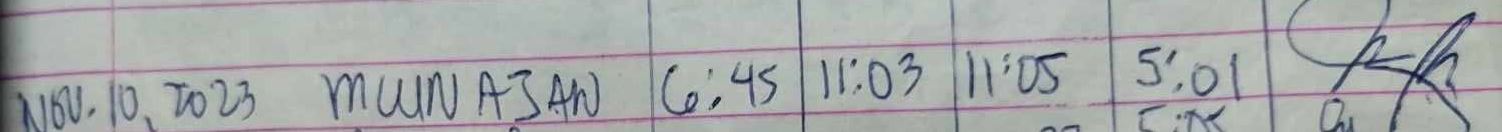 Nov. 10, 2023 MUUN AJAN 6:45 11:03 11:05 5:01